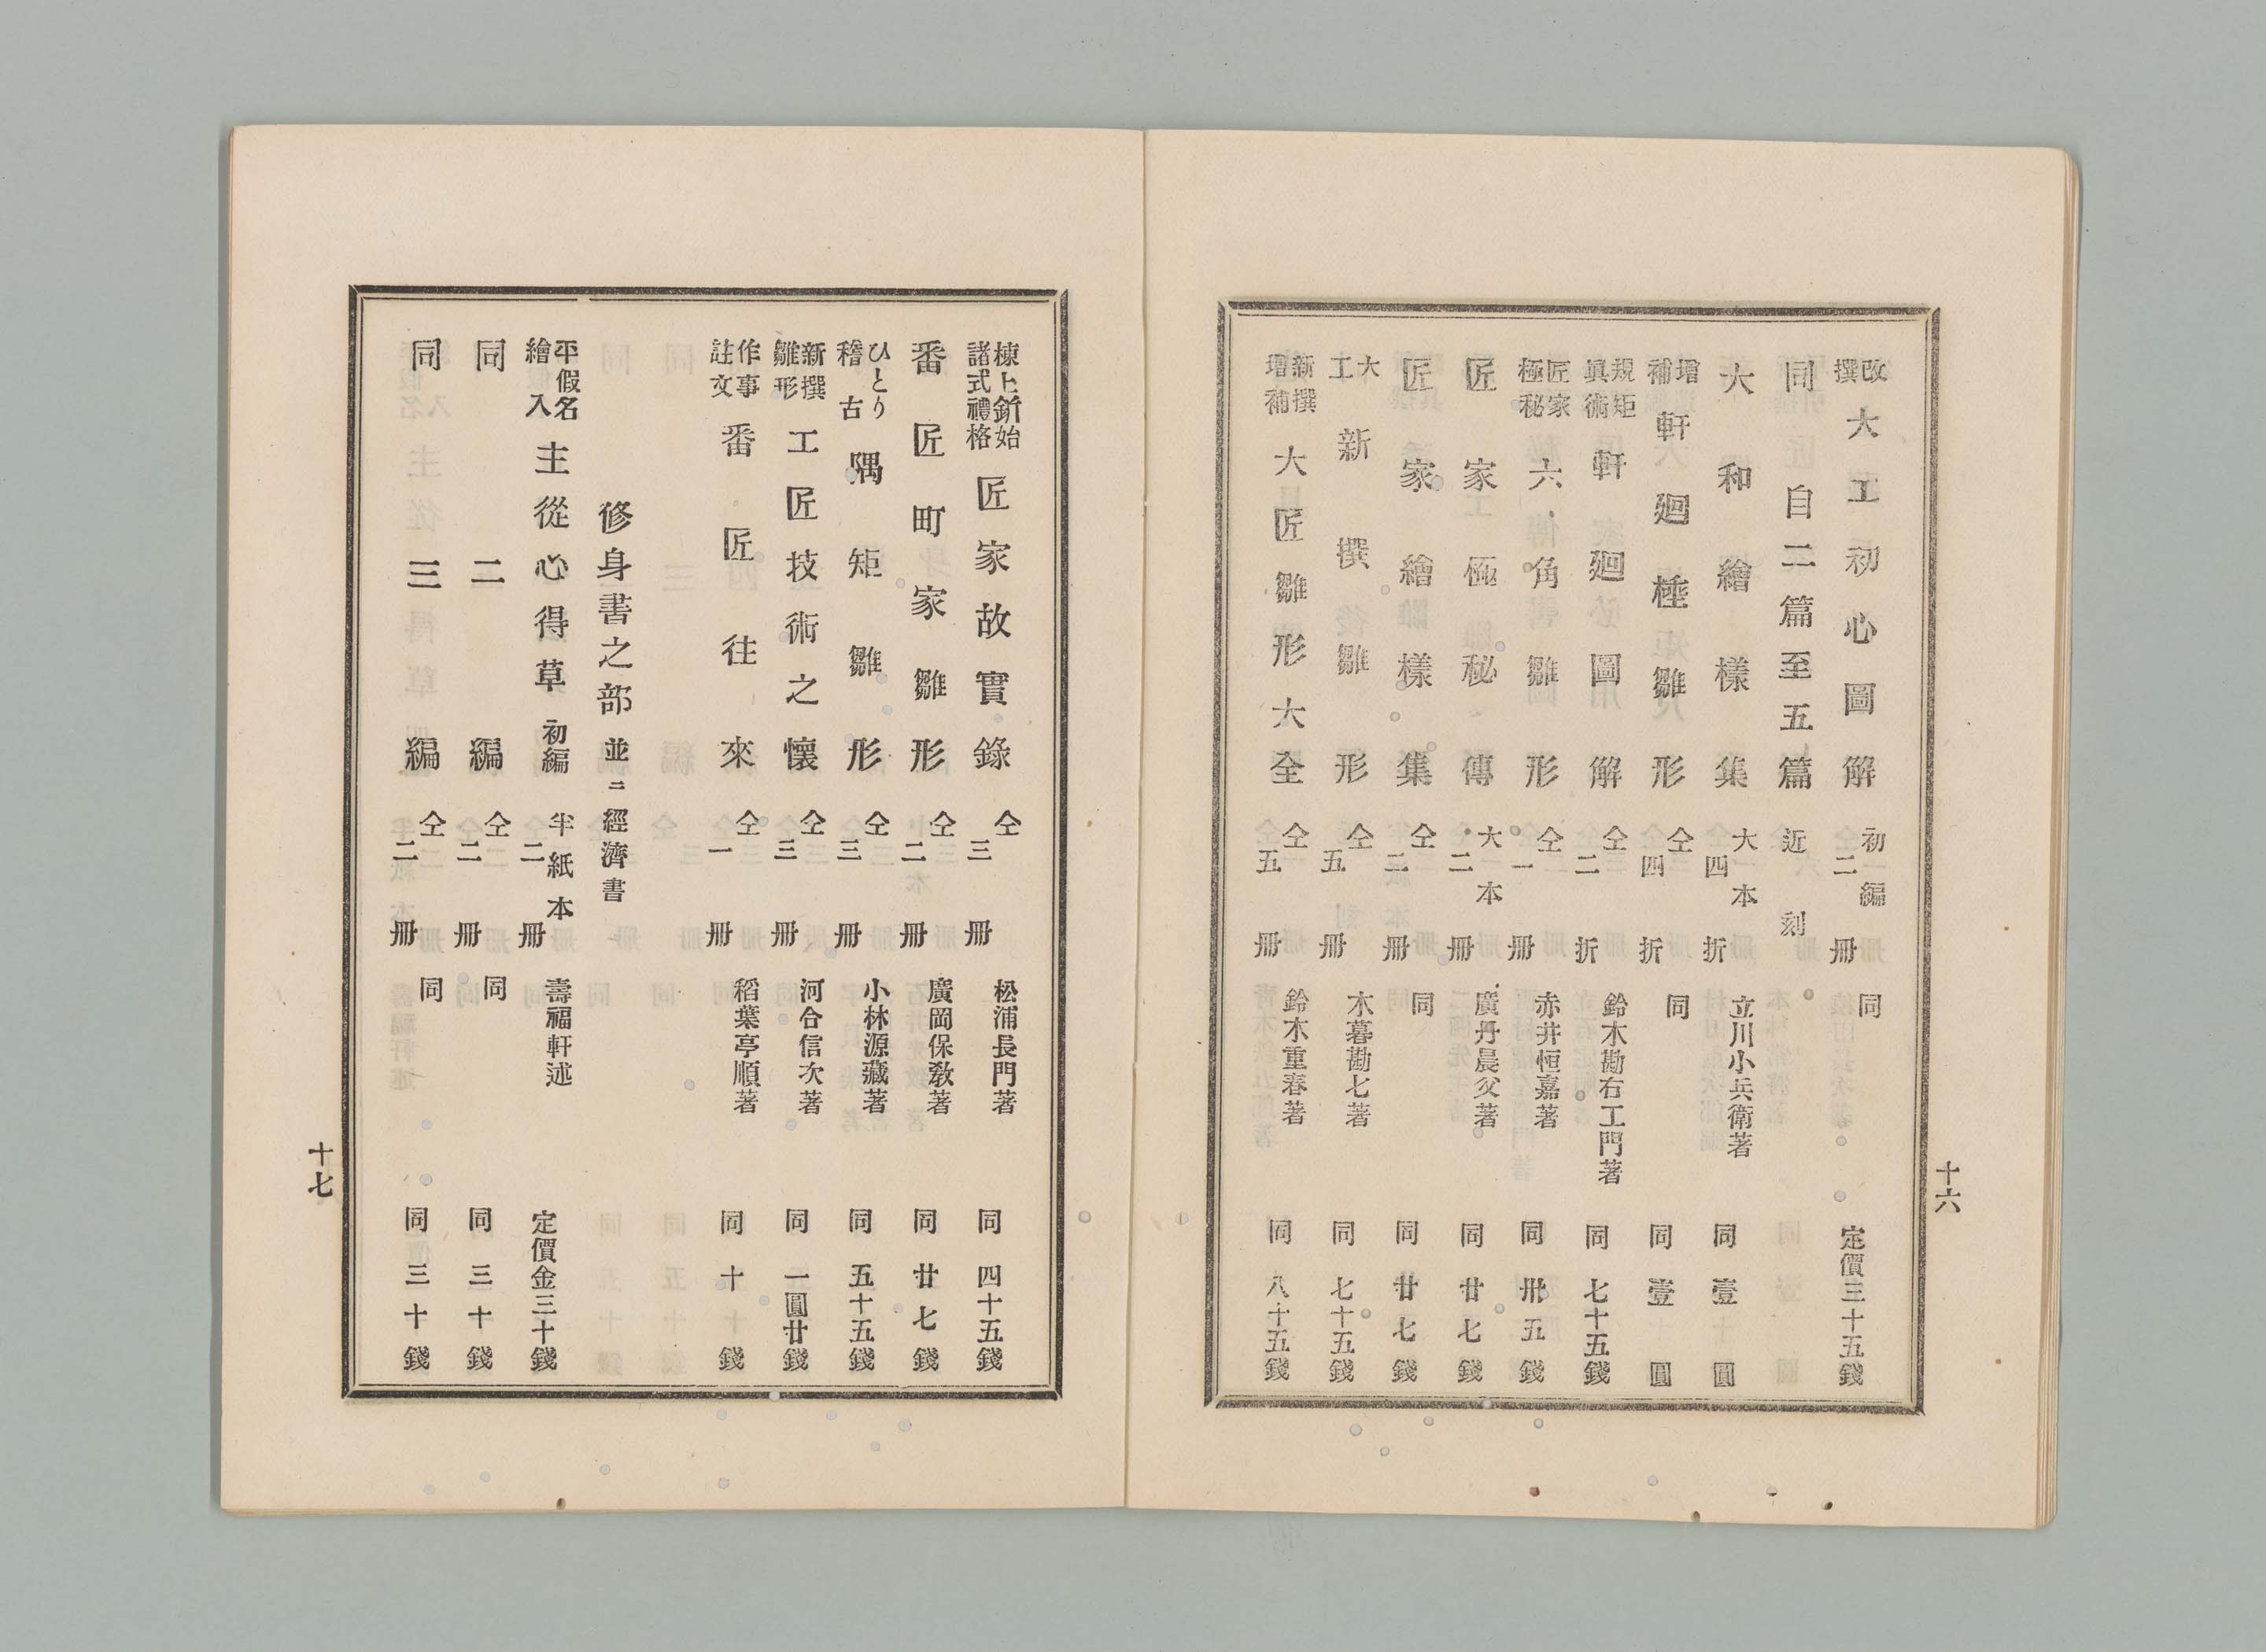 十六
改撰 大工初心圖解 初編 二冊 同 定價三十五錢
同自二篇至五篇 近刻
大和繪樣集 大本 四折 立川小兵衛著 同壹圓
增補 軒廻棰雛形 仝 四折 同 同壹圓
規矩眞術 軒廻圖解 仝 二折 鈴木勘右工門著 同七十五錢
匠家極秘 六角雛形 仝 一冊 赤井恒嘉著 同卅五錢
匠家極秘傳 大本 二冊 廣丹晨父著 同廿七錢
匠家繪樣集 仝 二冊 同 同廿七錢
大工 新撰雛形 仝 五冊 木暮勘七著 同七十五錢
新撰增補 大匠雛形大全 仝 五冊 鈴木重春著 同八十五錢
棟上釿始諸式禮格 匠家故實錄 仝 三冊 松浦長門著 同四十五錢
番匠町家雛形 仝 二冊 廣岡保敎著 同廿七錢
ひとり稽古 隅矩雛形 仝 三冊 小林源藏著 同五十五錢
新撰雛形 工匠技術之懷 仝 三冊 河合信次著 同一圓廿錢
作事註文 番匠往來 仝 一冊 稻葉亭順著 同十錢
修身書之部 並ニ經濟書
平假名繪入 主從心得草 初編 半紙本 二冊 壽福軒述 定價金三十錢
同二編 仝 二冊 同 同三十錢
同三編 仝 二冊 同 同三十錢
十七